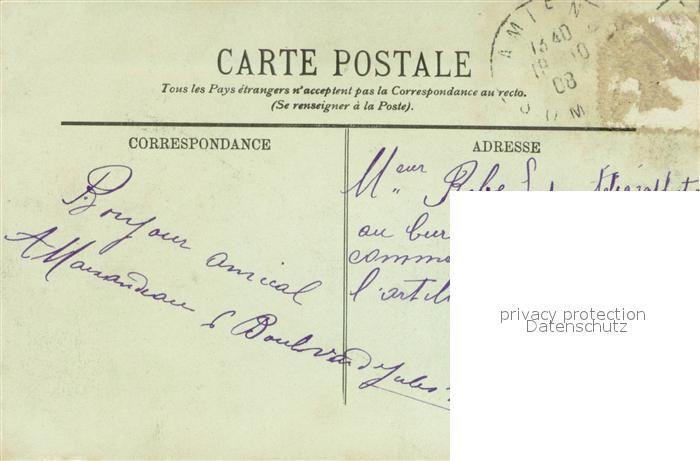 CARTE POSTALE
Tous les Pays étrangers n'acceptent pas la Correspondance au recto.
(Se renseigner à la Poste).
AMIENS
13 40
19 10
08
CORRESPONDANCE
ADRESSE
Bonjour amical
6 Boulevard Jules
Mr
au bur
comme
l'artil
privacy protection
Datenschutz